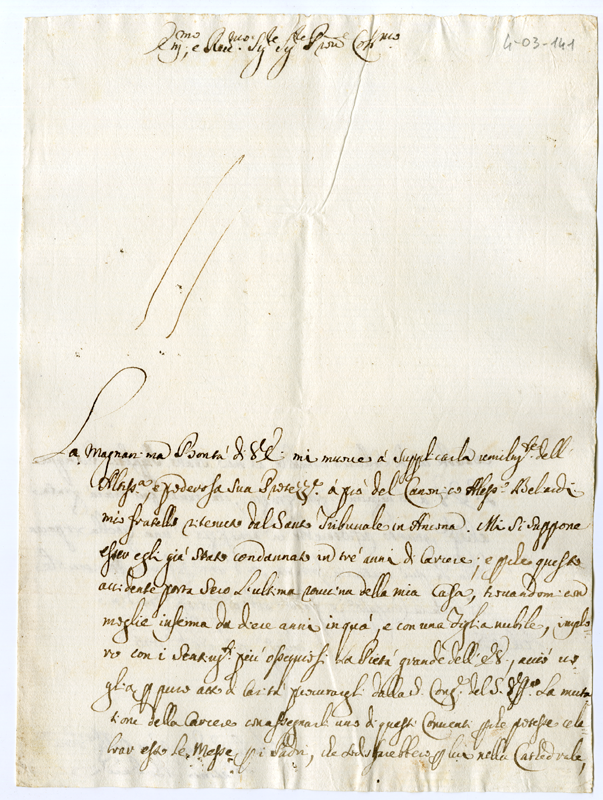 4-03-141
Em.mo e Rev.mo Sig.re Sig.re P.rone Col.mo
La magnanima Bontà di V.E. mi muove à supplicarla umilm.te dell'
Altiss.a, e poderosa sua Protez.e à prò del Canonico Aless.o Belardi
mio fratello ritenuto dal Santo Tribunale in Ancona. Mi si suppone
esser egli già stato condannato in trè anni di Carcere; e p che questo
accidente porta seco l'ultima rovina della mia Casa, trovandomi con
moglie inferma da diece anni in quà, e con una figlia nubile, implo
ro con i sentim.ti più ossequiosi la Pietà grande dell'E.V., acciò vo
glia p puro atto di Carità procurargli dalla S. Cong.e del S. Off.o la muta
tione della Carcere con assegnarli uno di questi Conventi p che potesse cele
brar esso le Messe, p i ... che ... p lui nella Cattedrale,